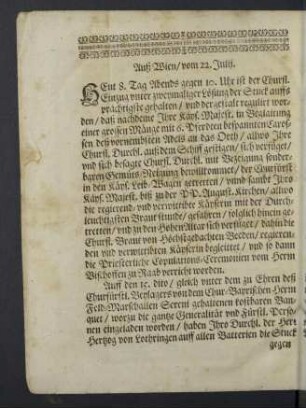 Auß Wien / vom 22. Julii.
HEut 8. Tag Abends gegen 10. Uhr ist der Churfl.
Einzug unter zweymaliger Lösung der Stuck auffs
prächtigste gehalten / und der gestalt regulirt wor-
den / daß nachdeme Ihre Käys. Majest. in Begleitung
einer grossen Mänge mit 6. Pferden bespannten Caros-
sen deß vornembsten Adels an das Orth / allwo Ihre
Churfl. Durchl. auß dem Schiff gestigen / sich verfüget /
und sich besagte Churfl. Durchl. mit Bezeigung sonder-
baren Gemüts-Neigung bewillkommet / der Churfürst
in den Käys. Leib-Wagen getretten / unnd sambt Ihro
Käys. Majest. biß zu der PP. August. Kirchen / allwo
die regierend- und verwittibte Käyserin mit der Durch-
leuchtigsten Braut stunde / gefahren / folglich hinein ge-
tretten / und zu den Hohen Altar sich verfüget / dahin die
Churfl. Braut von Höchstgedachten Beeden / regieren-
den und verwittibten Käyserin begleittet / und so dann
die Priesterliche Copulations-Ceremonien vom Herrn
Bischoffen zu Raab verricht worden.
Auff den 15. dito / gleich unter dem zu Ehren deß
Churfürsten, Verlagers von dem Chur-Bayrischen Herrn
Feld-Marschallen Sereni gehaltenen kostbaren Ban-
quet / worzu die gantze Generalität und Fürstl. Perso-
nen eingeladen worden / haben Ihro Durchl. der Herr
Hertzog von Lothringen auff allen Batterien die Stuck
gegen